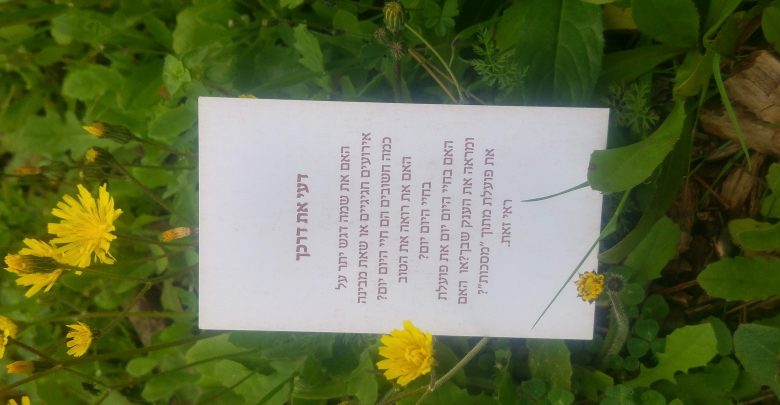 דעי את דרכך
האם את שמה דגש יתר על
אירועים חגיגיים או שאת מבינה
כמה חשובים הם חיי היום יום?
האם את רואה את הטוב
בחיי היום יום?
האם בחיי היום יום את פועלת
ומראה את הענק שבך?או האם
את פועלת מתוך "מסכות"?
ראי זאת.